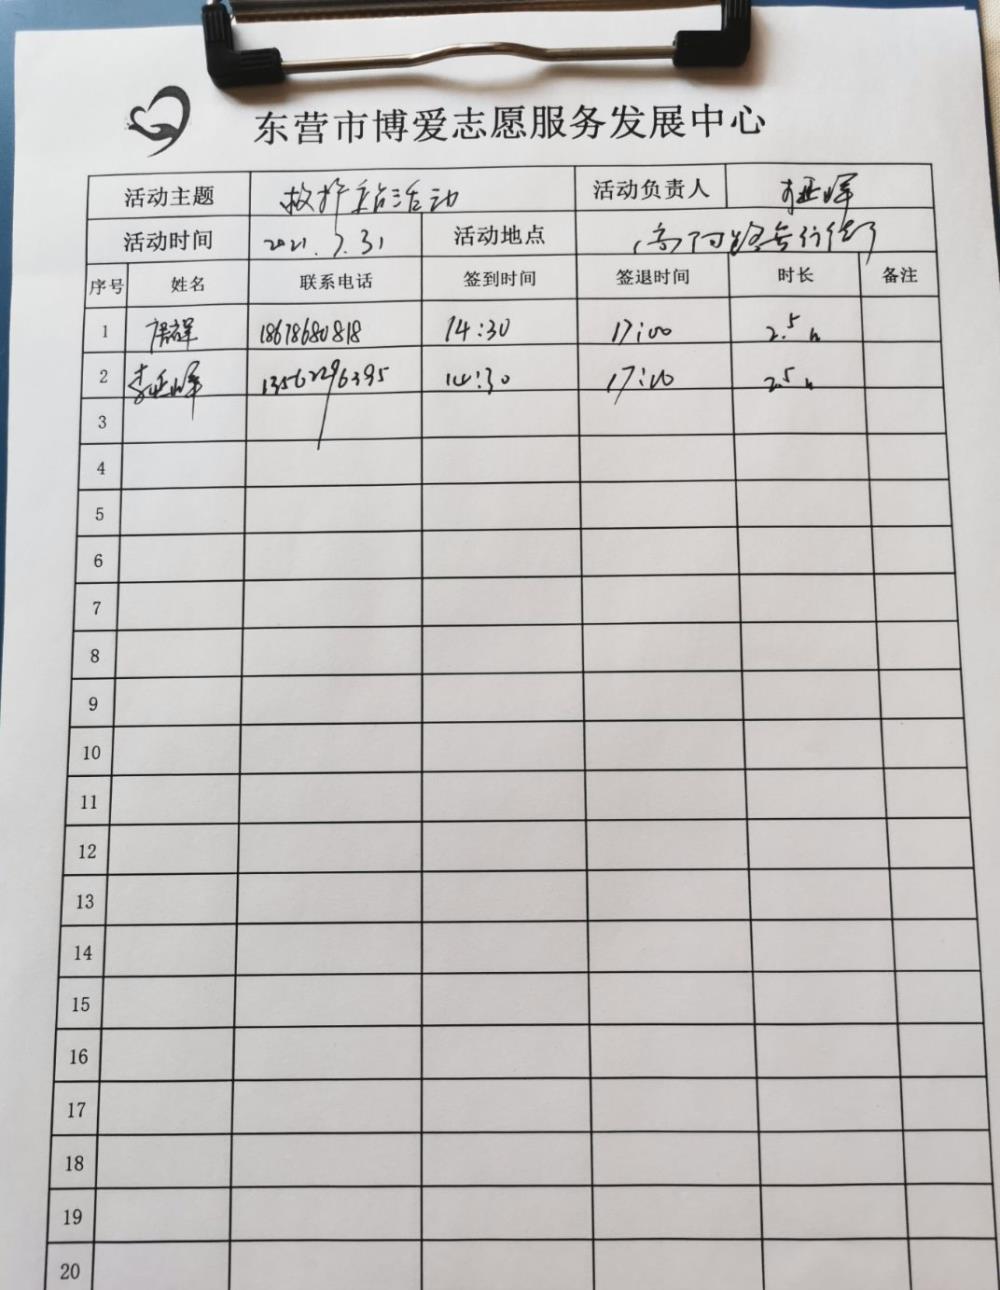 东营市博爱志愿服务发展中心
活动主题 救护站活动 活动负责人 李亚晖
活动时间 2021.7.31 活动地点 步行街
序号 姓名 联系电话 签到时间 签退时间 时长 备注
1 18678680818 14:30 17:00 2.5h
2 李亚晖 13562296395 14:30 17:00 2.5h
3
4
5
6
7
8
9
10
11
12
13
14
15
16
17
18
19
20